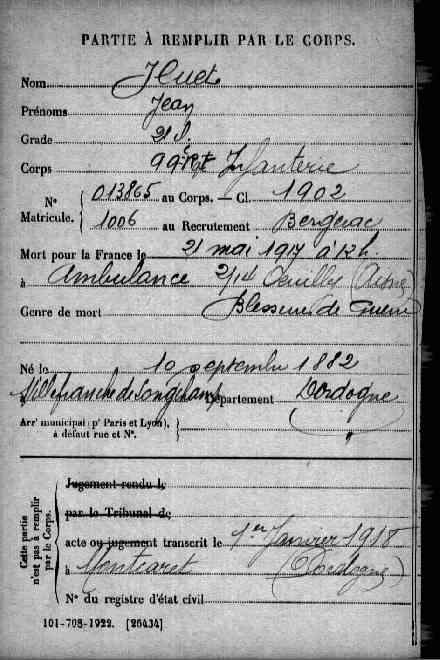 PARTIE À REMPLIR PAR LE CORPS.
Nom Huet
Prénoms Jean
Grade 2e S.
Corps 99e Rgt Infanterie
N° Matricule. { 013865 au Corps. — Cl. 1902
1006 au Recrutement Bergerac
Mort pour la France le 21 mai 1917 à 12 h
à Ambulance 2/14 Oeuilly (Aisne)
Genre de mort Blessures de Guerre
Né le 10 septembre 1882
à Villefranche de Longchapt Département Dordogne
Arrt municipal (pr Paris et Lyon), à défaut rue et N°. }
Cette partie n'est pas à remplir par le Corps. {
Jugement rendu le
par le Tribunal de
acte ou jugement transcrit le 1er Janvier 1918
à Montcaret (Dordogne)
N° du registre d'état civil
101-708-1922. [26434]